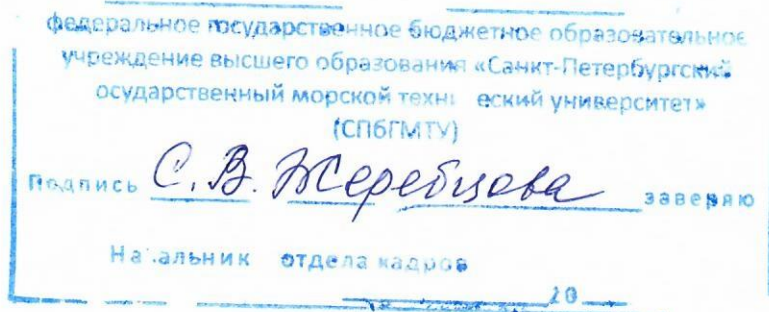 федеральное государственное бюджетное образовательное
учреждение высшего образования «Санкт-Петербургский
осударственный морской техн еский университет»
(СПбГМТУ)
Подпись С. В. Жеребцова заверяю
На альник отдела кадров
20